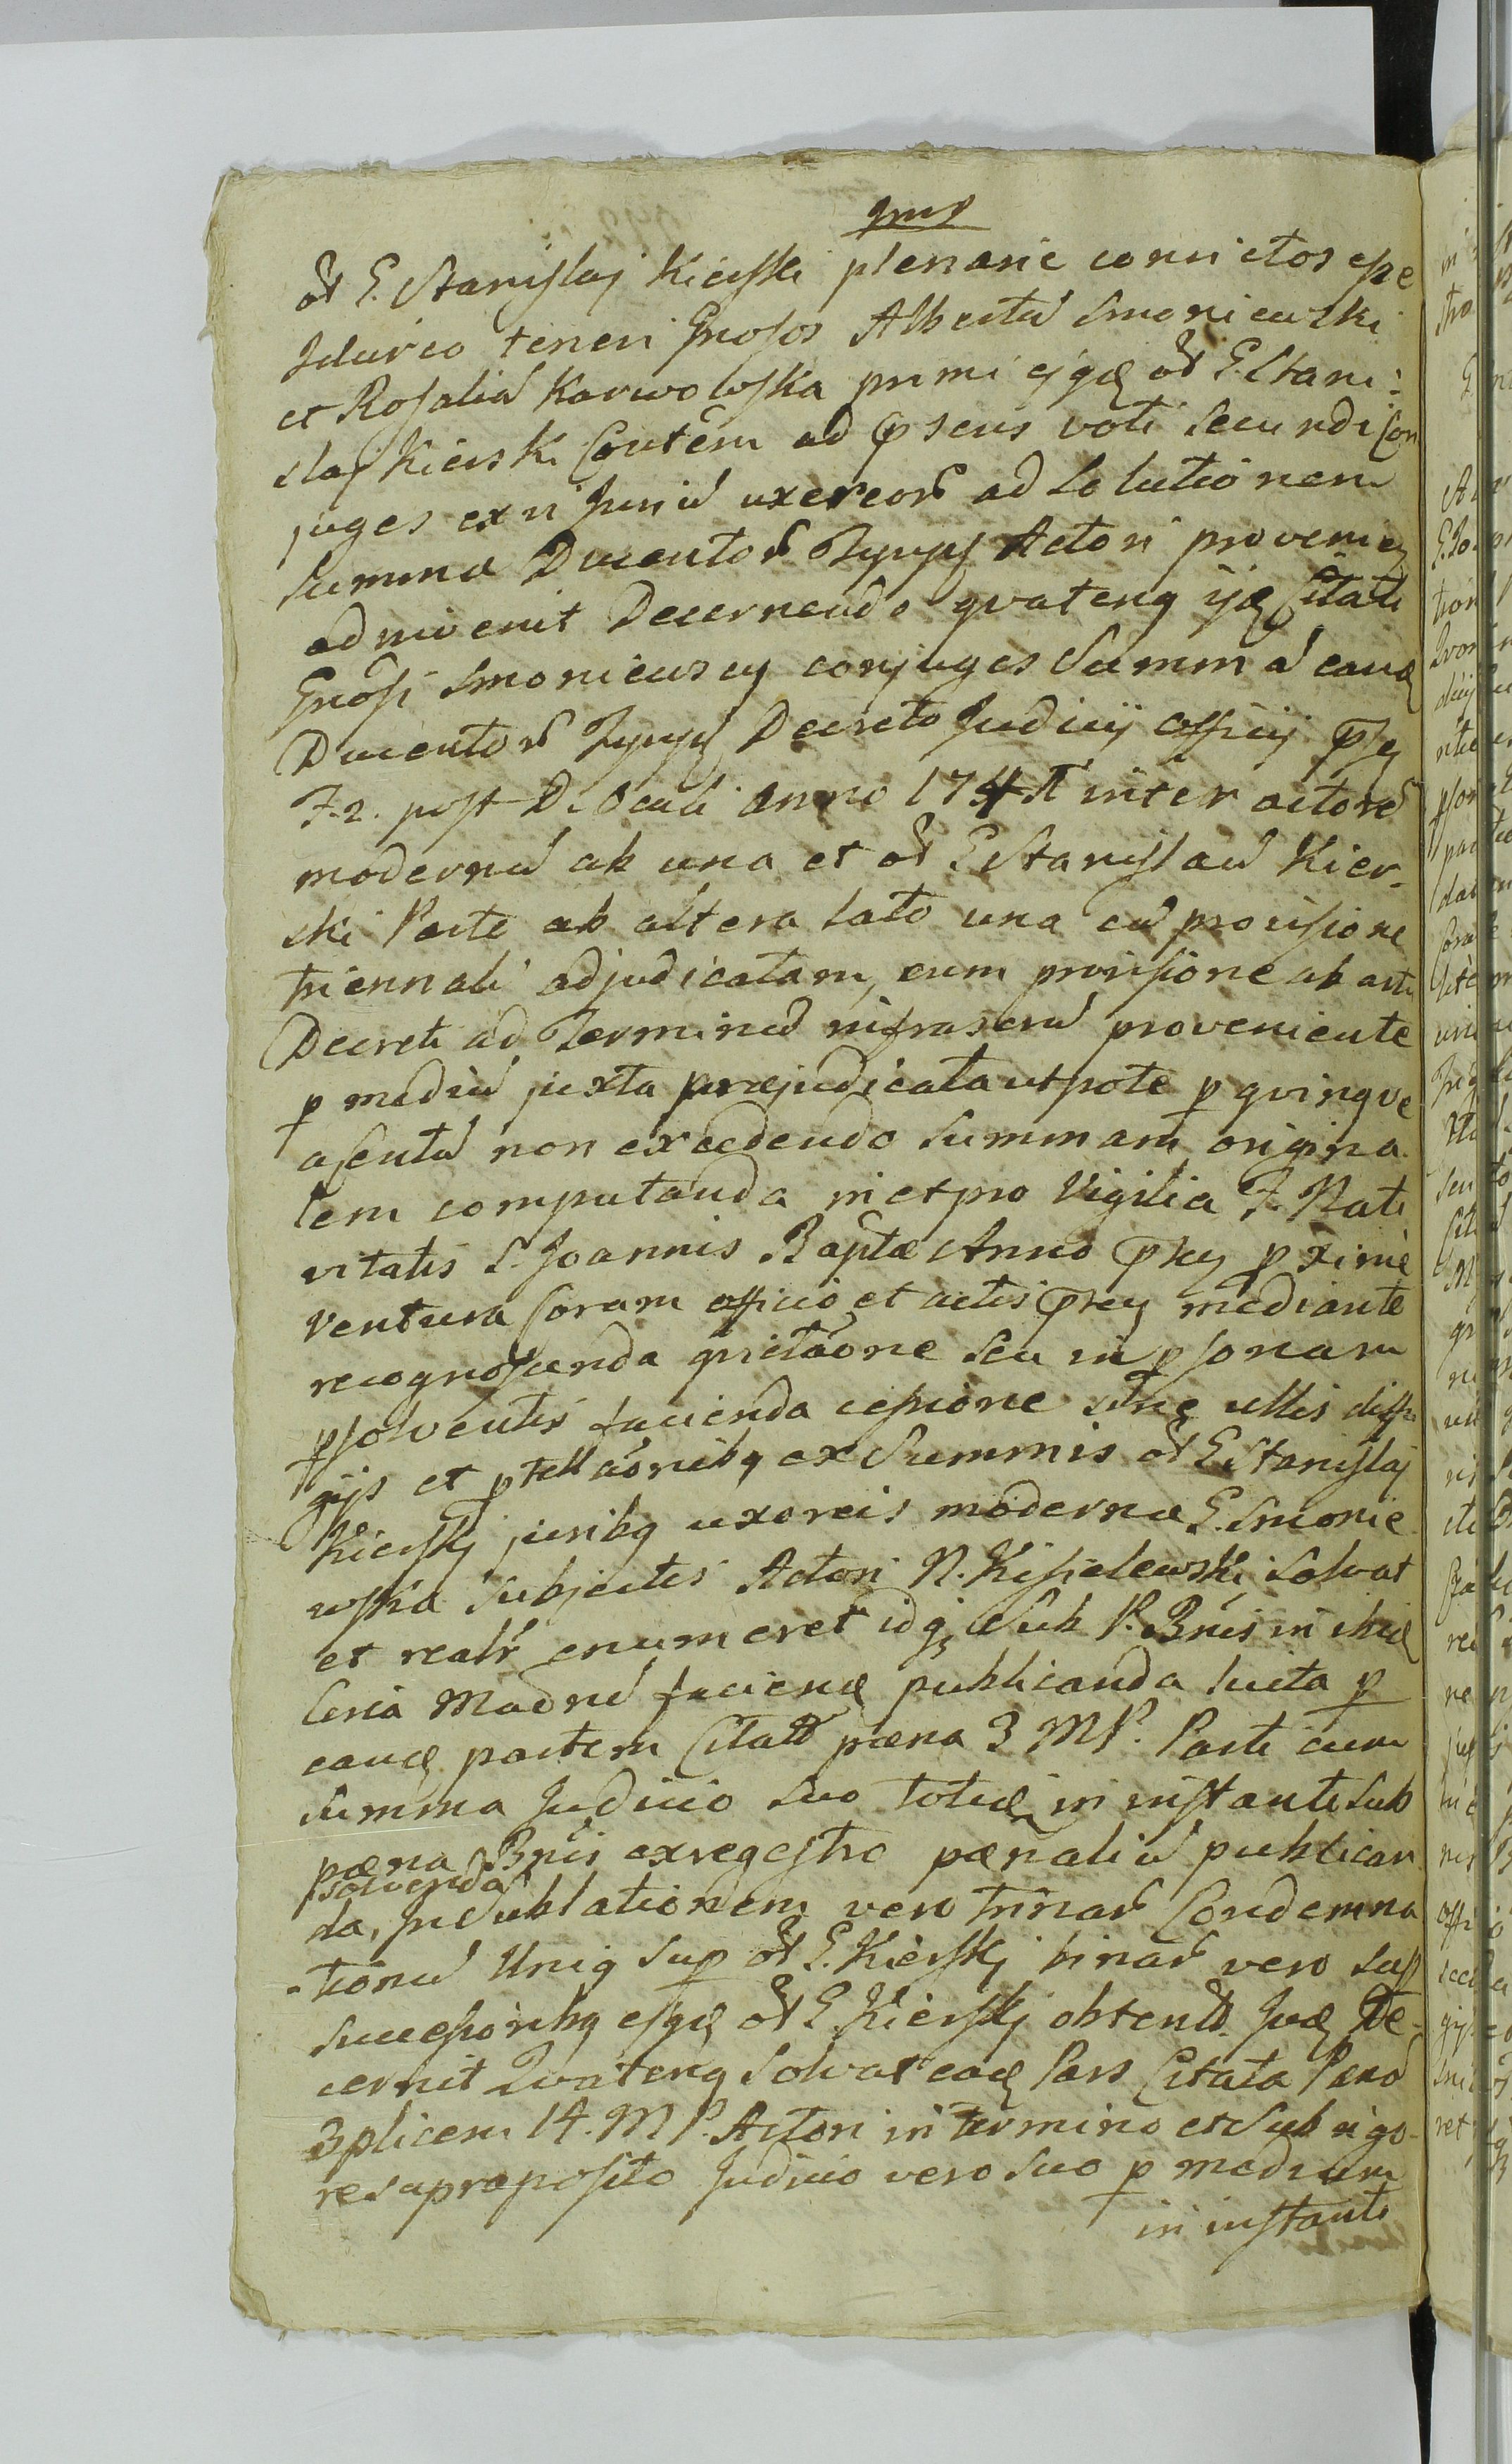 ol͠ G. Stanislaj Kierski plenarie convictos esse
Ideirco teneri Gnosos Albertu͂ Smoniewski
et Rosaliã Karwowska primi ejqꝫ ol͠ G. Stani:
slaj Kierski Contẽm ad p̃sens voti secundi Con
juges ex vi Juriũ uxoreorũ ad Solutionem
Summæ Ducentorũ Tynpf Actori provenien
adinvenit Decernendo qvatenq ijdꝫ Citati
Gnosi Smoniewscy conjuges Summã eandꝫ
Ducentorũ Tynpf Decreto Judicij Officij p̃sg
F. 2. post D. Oculi Anno 174 inter actorẽ
modernũ ab una et ol͠ G. Stanislaũ Kier-
ski Parte ab altera lato una cũ provisione
triennali adjudicatam, cum provisione ab actu
Decreti ad Terminũ infrascrũ proveniente
p mediũ juxta præjudicata utpote p qvinqve
a centũ non excedendo Summam origina
lem computanda in et pro Vigilia F. Nati
vitatis S. Joannis Baptæ Anno p̃ntj proxime
ventura Coram officio et actis p̃ntj mediante
recognoscenda qvietaõne seu in psonam
psolventis facienda cessione sine ullis diffu
gijs et ptellaõnibq ex Summis ol͠ G. Stanislaj
Kierskj juribq uxoreis modernæ G. Smonie
wska subjectis Actori N. Kisielewski Solvat
et realr̃ enumeret idqꝫ Sub P. Bñis in
publicanda lucta p
eandꝫ partem Citatã pæna 3 MP. Parti cum
summa Judicio suo totidꝫ in instanti sub
pæna Bñis ex regestro pænaliũ publican
solvenda
da, In Sublationem vero trinarũ Condemna
-tionũ Uniq sup ol͠ G. Kierskj binarũ vero sup
successoribq ejqꝫ ol͠ G. Kierskj obtentã. Judꝫ De-
cernit Qvatenq Solvat eadꝫ Pars Citata Pænã
3plicem 14. MP. Actori in termino et Sub rigo-
re supraposito Judicio vero suo p medium
in instanti